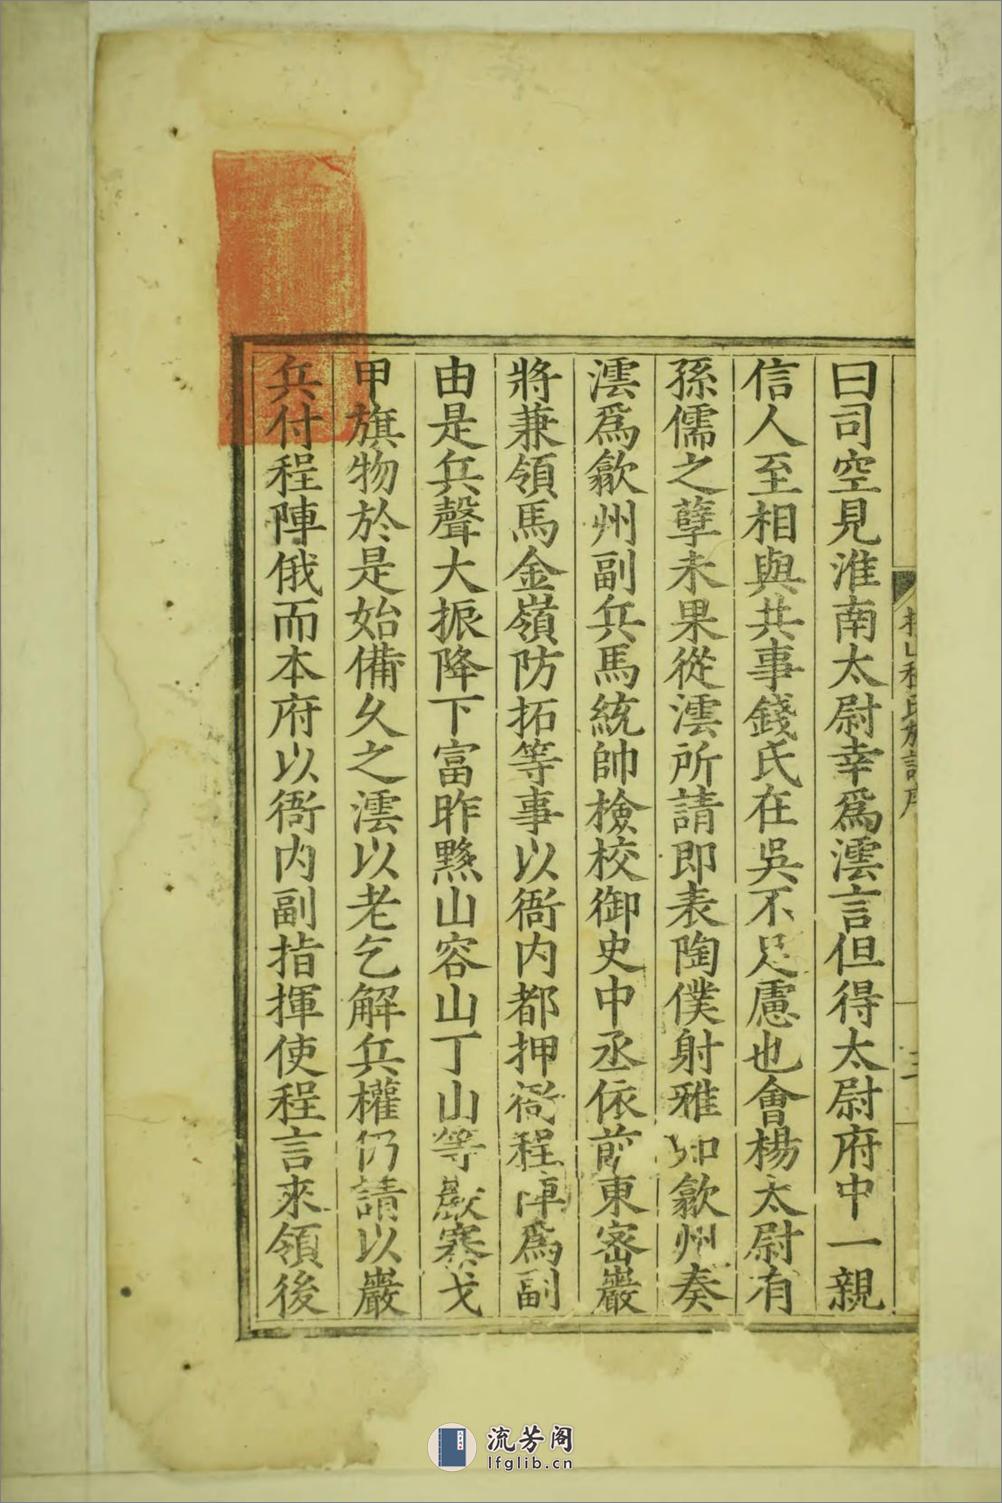 曰司空見淮南太尉幸爲澐言但得太尉府中一親
信人至相與共事錢氏在吳不足慮也會楊太尉有
孫儒之孽未果從澐所請即表陶僕射雅知歙州奏
澐爲歙州副兵馬統帥檢校御史中丞依前東密巖
將兼領馬金嶺防拓等事以衙内都押衙程陣爲副
由是兵聲大振降下富昨黟山容山丁山等巖寨戈
甲旗物於是始備久之澐以老乞解兵權仍請以巖
兵付程陣俄而本府以衙内副指揮使程言來領後
程氏族譜序
三
流芳阁
lfglib.cn